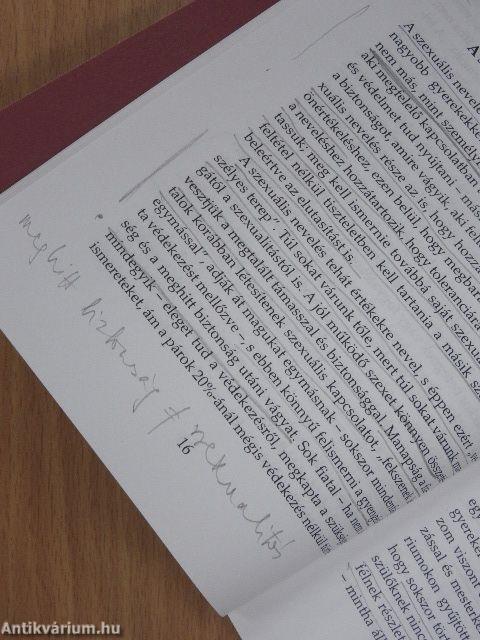 A szexuális nevelé
nagyobb gyerekekke
nem más, mint személyi
aki megfelelő kapcsolatban
és védelmet tud nyújtani – más
a biztonságot, amire vágyik, aki felt
xuális nevelés része az is, hogy hozzá
önértékeléshez, ezen belül, hogy megbará
a neveléshez hozzátartozik, hogy toleranciára
tassuk: meg kell ismernie továbbá saját szexuá
feltétel nélkül tiszteletben kell tartania a másik sz
beleértve az elutasítást is.
A szexuális nevelés tehát értékekre nevel, s éppen ezért „ve
szélyes terep”. Túl sokat várunk tőle, mert túl sokat várunk ma
gától a szexualitástól is. A jól működő szexet könnyen összeté
vesztjük a megtalált támasszal és biztonsággal. Manapság a fia
talok korábban létesítenek szexuális kapcsolatot, „fekszenek
egymással”, adják át magukat egymásnak – sokszor mindenfaj
ta védekezést mellőzve –, s ebben könnyű felismerni a gyengéd
ség és a meghitt biztonság utáni vágyat. Sok fiatal – ha nem
mindegyik – eleget tud a védekezésről, megkapta a szükség
ismereteket, ám a párok 20%-ánál mégis védekezés nélkül tör
16
meghitt biztonság ≠ szexualitás
eg
gyereke
zem viszont
zással és mestersé
riumokon gyűjtött
hogy sokszor tör
szülőknek ninc
félnek részle
– mintha áll
Antikvárium.hu